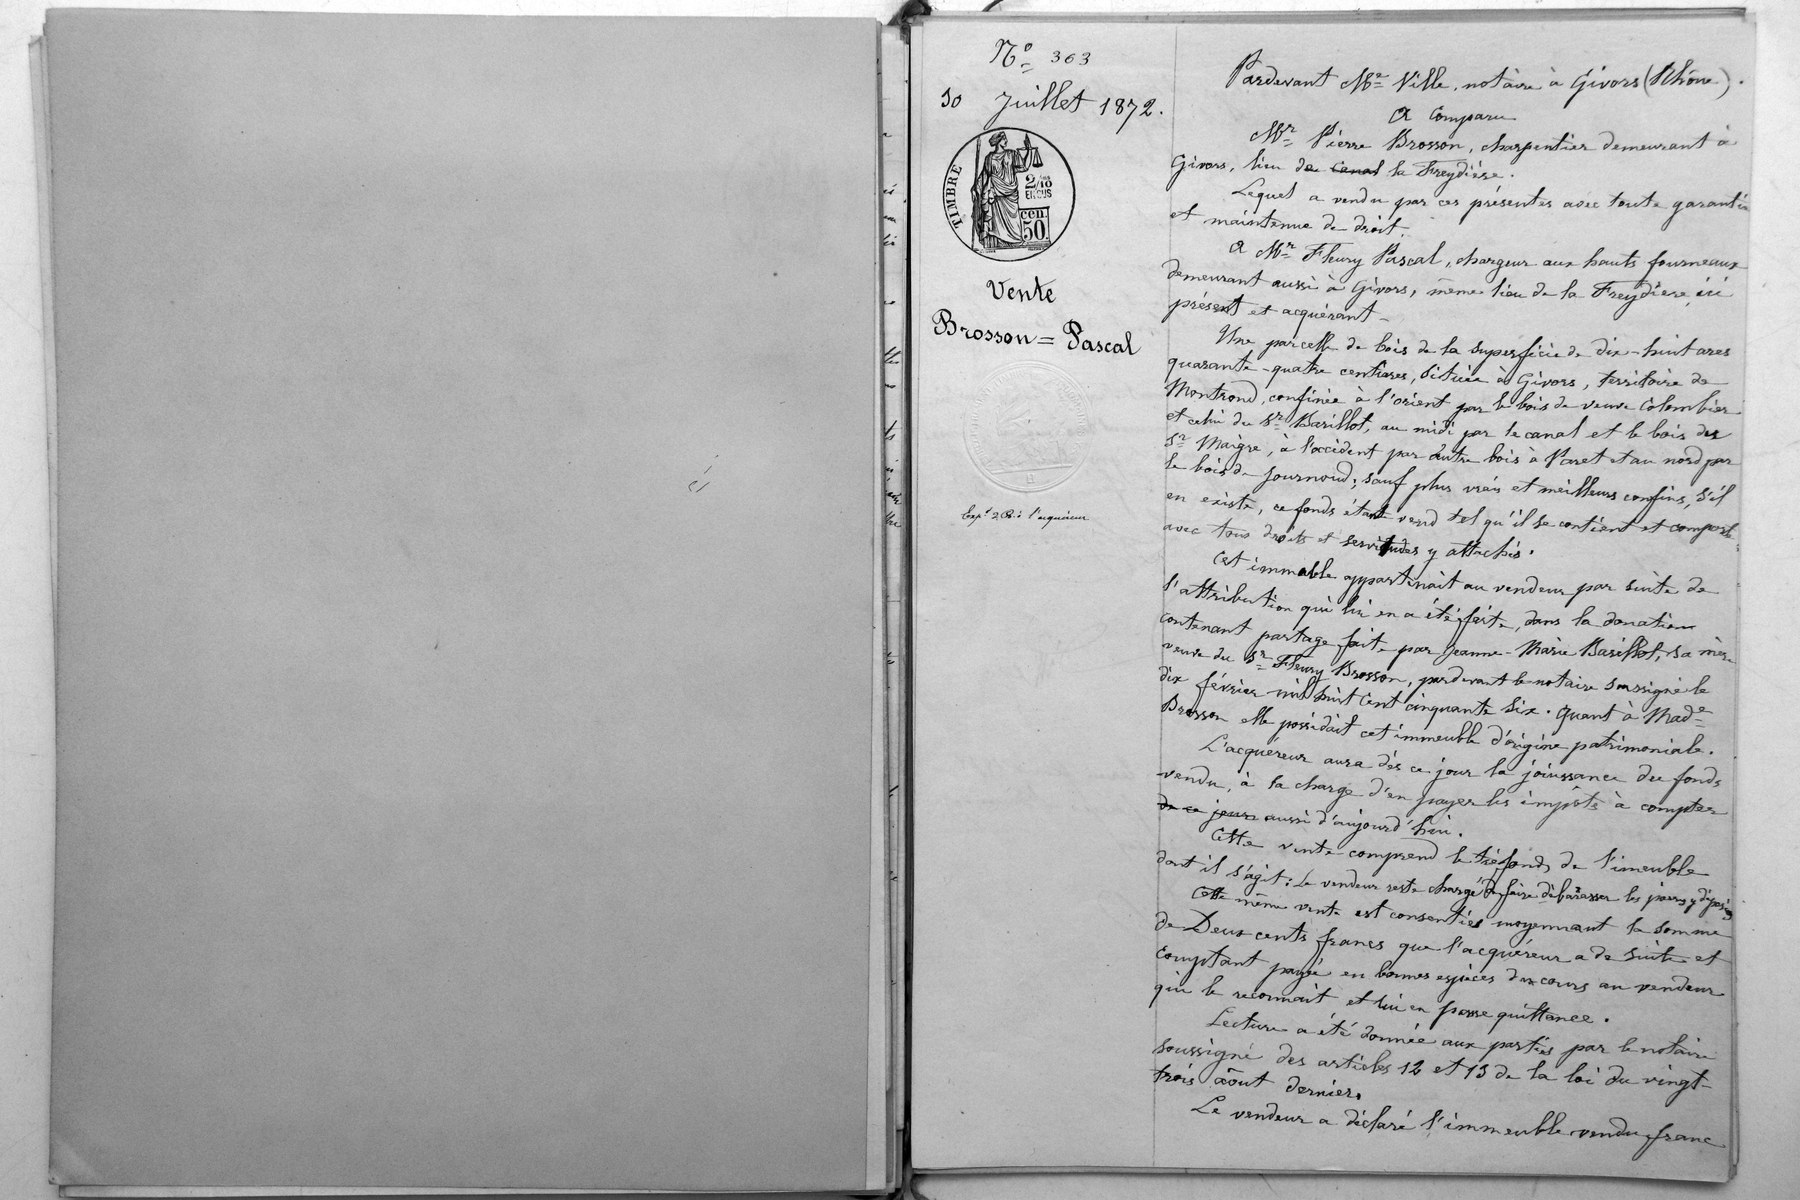 N° 363
30 Juillet 1872.
TIMBRE
2/10
EN SUS
50 cen.
Vente
Brosson = Pascal
l'acquéreur
Pardevant Me Ville, notaire à Givors (Rhône).
A Comparu
Mr Pierre Brosson, charpentier demeurant à
Givors, lieu de canal la Freydière.
Lequel a vendu par ces présentes avec toute garantie
et maintenue de droit.
A Mr Fleury Pascal, chargeur aux hauts fourneaux
demeurant aussi à Givors, même lieu de la Freydière, ici
présent et acquérant
Une parcelle de bois de la superficie de dix-huit ares
quarante-quatre centiares, située à Givors, territoire de
Montrond, confinée à l'orient par le bois de veuve Colombier
et celui du Sr Barillot, au midi par le canal et le bois du
Sr Maigre, à l'occident par autre bois à Varet et au nord par
le bois de Journoud; sauf plus vrais et meilleurs confins, s'il
en existe, ce fonds étant vend tel qu'il se contient et comporte
avec tous droits et servitudes y attachés.
Cet immeuble appartenait au vendeur par suite de
l'attribution qui lui en a été faite, dans la donation
contenant partage faite par Jeanne-Marie Barillot, sa mère
veuve du Sr Fleury Brosson, pardevant le notaire soussigné le
dix février mil huit cent cinquante six. Quant à Made
Brosson elle possédait cet immeuble d'origine patrimoniale.
L'acquéreur aura dès ce jour la jouissance du fonds
vendu, à la charge d'en payer les impôts à compter
de ce jour aussi d'aujourd'hui.
Cette vente comprend le tréfonds de l'imeuble
dont il s'agit: le vendeur reste chargé de faire débarasser les y déposés
Cette même vente est consentie moyennant la somme
de Deux cents francs que l'acquéreur a de suite et
comptant payée en bonnes espèces de cours au vendeur
qui le reconnait et lui en passe quittance.
Lecture a été donnée aux parties par le notaire
soussigné des articles 12 et 13 de la loi du vingt-
trois août dernier.
Le vendeur a déclaré l'immeuble vendu franc